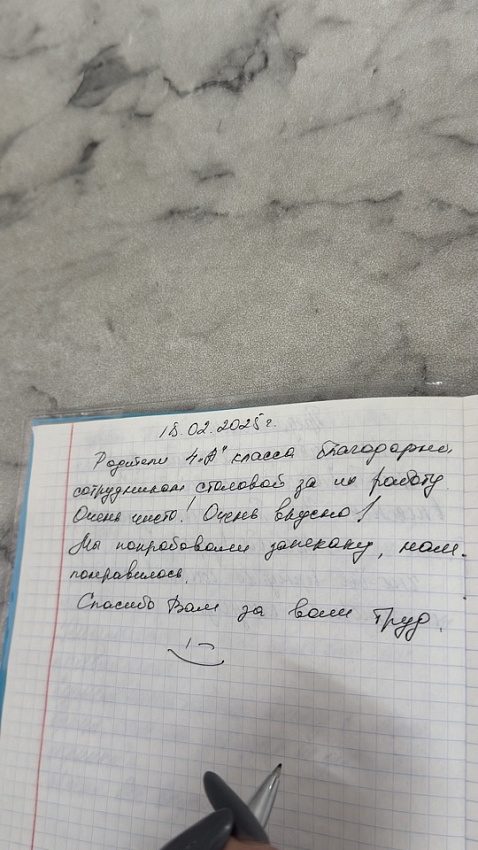 18.02.2025г.
Родители 4 "А" класса благодарны
сотрудникам столовой за их работу
Очень чисто! Очень вкусно!
Мы попробовали запеканку, нам
понравилось.
Спасибо Вам за ваш труд.